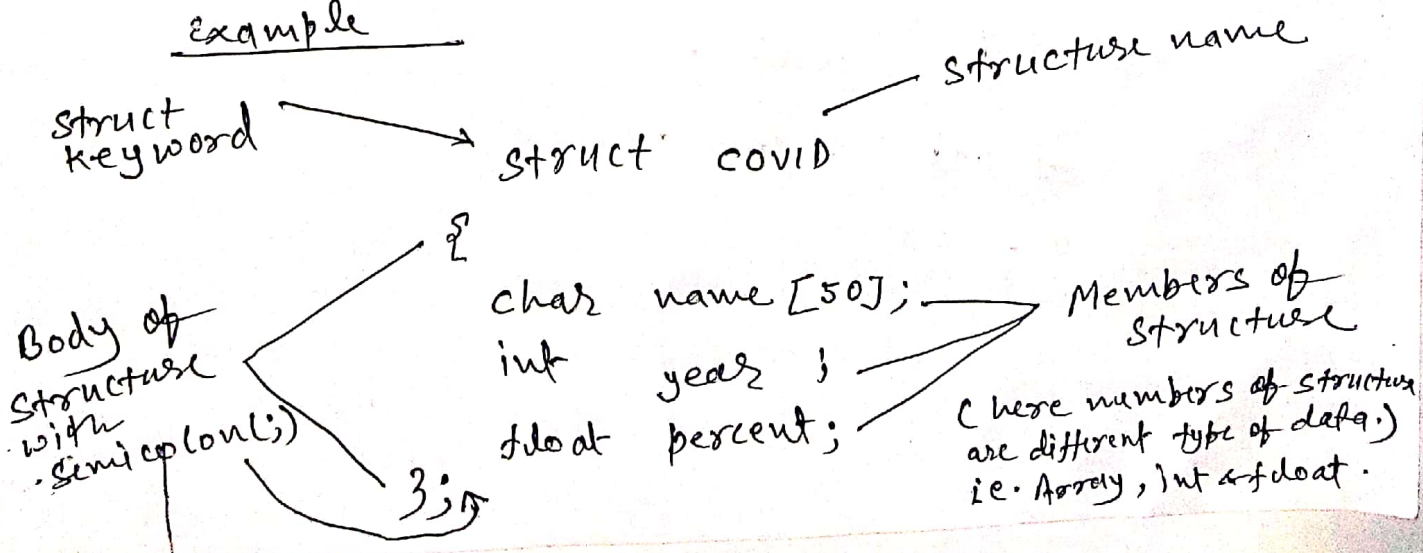 Example
Structure name
Struct
keyword
Struct COVID
{
char name [50];
int year ;
float percent;
};
Body of
Structure
with
semicolon(;)
Members of
Structure
( here numbers of structure
are different type of data.)
ie. Array, Int & float.